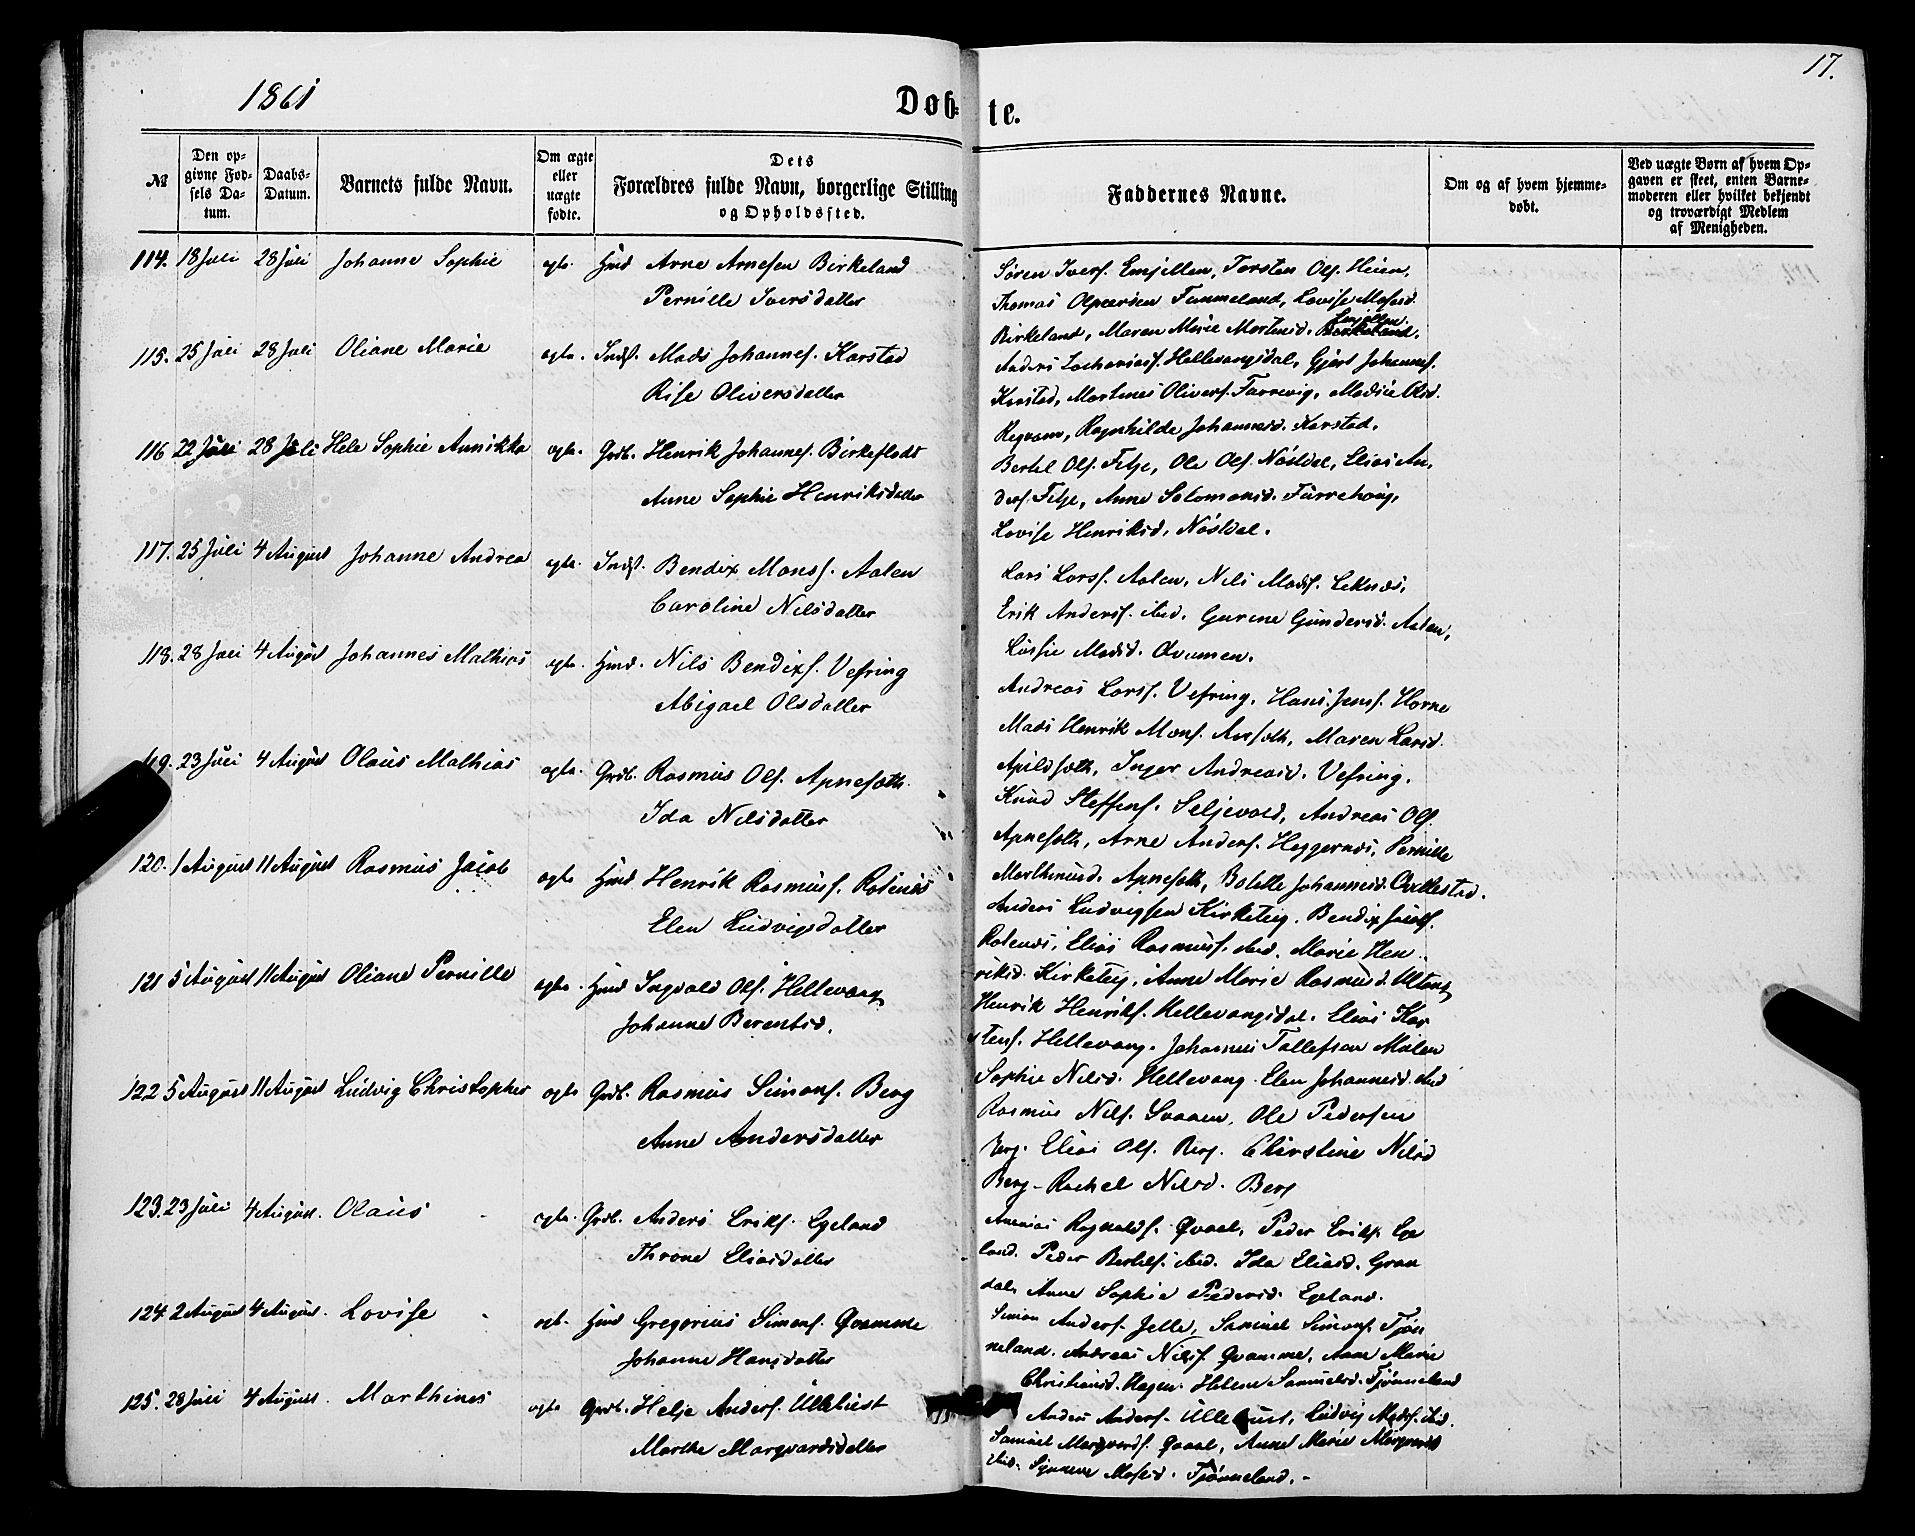 17.
1861
Døb-
te.
№
Den op-
givne Fød-
sels Da-
tum.
Daabs-
Datum.
Barnets fulde Navn.
Om ægte
eller
uægte
fødte.
Dets
Forældres fulde Navn, borgerlige Stilling
og Opholdssted.
Faddernes Navne.
Om og af hvem hjemme-
døbt.
Ved uægte Børn af hvem Op-
gaven er skeet, enten Barne-
moderen eller hvilket bekjendt
og troværdigt Medlem
af Menigheden.
114. 18 Juli 28 Juli Johanne Sophie ægte. Hmd Arne Arnesen Birkeland
Pernille Iversdatter
Søren Ivers. Torsten Ols. Heien,
Thomas Lovise
Birkeland, Maren Marie Birkeland.
115. 25 Juli 28 Juli Oliane Marie ægte. Indst. Mads Johannes. Karstad
Rise Oliversdatter
Anders Zachariass. Hellevangsdal, Gjert Johannes.
Karstad, Martines Olivers. Farrevig,
Ragnhilde Johannesd. Karstad.
116 22 Juli 28 Juli Hele Sophie Annikka ægte. Grdb. Henrik Johannes. Birkeflodt
Anne Sophie Henriksdatter
Bertel Ols. Fitje, Ole Ols. Nøstdal, Elias An-
ders. Fitje, Anne Salomonsd. Furrehoug,
Lovise Henriksd. Nøstdal.
117. 25 Juli 4 August Johanne Andrea ægte. Indst. Bendix Monss. Aalen
Caroline Nilsdatter
Lars Larss. Aalen, Nils Madss. Leknæs,
Erik Anderss. ibid. Gurine Gundersd. Aalen,
Madsd.
118. 28 Juli 4 August Johannes Mathias ægte. Hmd. Nils Bendixs. Vefring
Abigael Olsdatter
Andreas Larss. Vefring, Hans Jenss. Horne
Mads Henrik Monss. Maren Larsd.
Inger Andreasd. Vefring.
119. 23 Juli 4 August Olaus Mathias ægte. Grdb. Rasmus Ols. Apnesæth.
Ida Nilsdatter
Knud Steffens. Seljevold, Andreas Ols.
Apnesæth, Arne Anders. Heggernæs, Pernille
Apnesæth, Bolette Johannesd.
120. 1 August 11 August Rasmus Jacob ægte Hmd Henrik Rasmus. Rodenæs
Elen Ludvigsdatter
Anders Ludvigsen Kirketeig. Bendix
Elias Rasmus. ibid. Marie Hen-
riksd. Kirketeig, Anne Marie Rasmusd.
121 5 August 11 August Oliane Pernille ægte. Hmd Ingvald Ols. Hellevang
Johanne Berentsd.
Henrik Henriks. Hellevangsdal. Elias Kar-
stens. Hellevang. Johannes Tollefsen
Sophie Nilsd. Hellevang. Elen Johannesd. ibid
122 5 August 11 August Ludvig Christopher ægte Grdb. Rasmus Simons. Berg
Anne Andersdatter
Rasmus Nils. Svaaen, Ole Pedersen
Berg. Elias Ols. Berg. Christine Nilsd
Berg - Rachel Nilsd. Berg
123. 23 Juli 4 August. Olaus ægte. Grdb. Anders Eriks. Egeland
Throne Eliasdatter
Ragnalds. Qvaal, Peder Eriks. Ege
land. Peder Bertels. ibid. Ida Eliasd. Gron
dal, Anne Sophie Pedersd. Egeland.
124. 2 August 4 August. Lovise ægt. Hmd Gregorius Simons. Qvamme
Johanne Hansdatter
Simon Anders. Jelle, Samuel Simons. Tjøn
neland. Andreas Nils. Qvamme, Anne Marie
Christiansd. Hagen. Helene Samuelsd. Tjønneland
125. 28 Juli 4 August. Marthines ægte Grdb. Helje Anders. Ullelust
Marthe Margvardsdatter
Anders Anders. Ullelust, Ludvig Mads. ibid.
Samuel Margvards. Qvaal, Anne Marie Margvardsd
ibid. Synneve Tjønneland. -